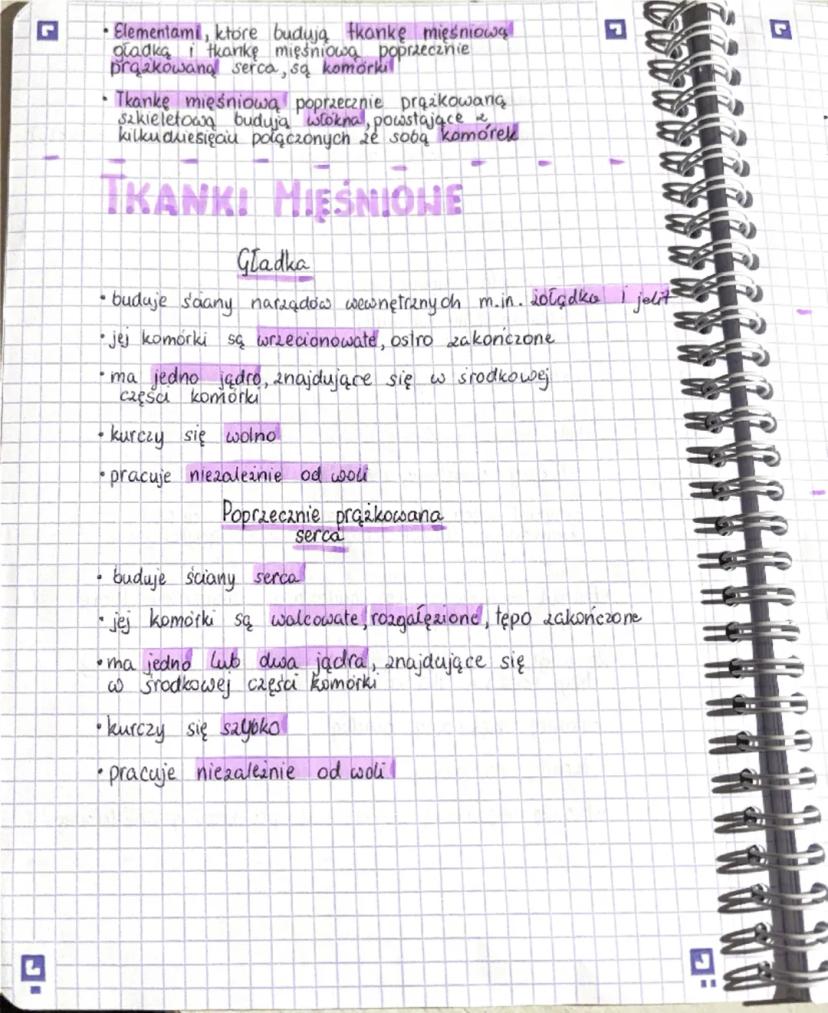 • Elementami, które budują tkankę mięśniową
gładką i tkankę mięśniową poprzecznie
prążkowaną serca, są komórki
• Tkankę mięśniową poprzecznie prążkowaną
szkieletową budują włókna, powstające z
kilkudziesięciu połączonych ze sobą komórek
TKANKI MIĘŚNIOWE
Gładka
• buduje ściany narządów wewnętrznych m.in. żołądka i jelit
• jej komórki są wrzecionowate, ostro zakończone
• ma jedno jądro, znajdujące się w środkowej
części komórki
• kurczy się wolno
• pracuje niezależnie od woli
Poprzecznie prążkowana
serca
• buduje ściany serca
• jej komórki są walcowate, rozgałęzione, tępo zakończone
• ma jedno lub dwa jądra, znajdujące się
w środkowej części komórki
• kurczy się szybko
• pracuje niezależnie od woli